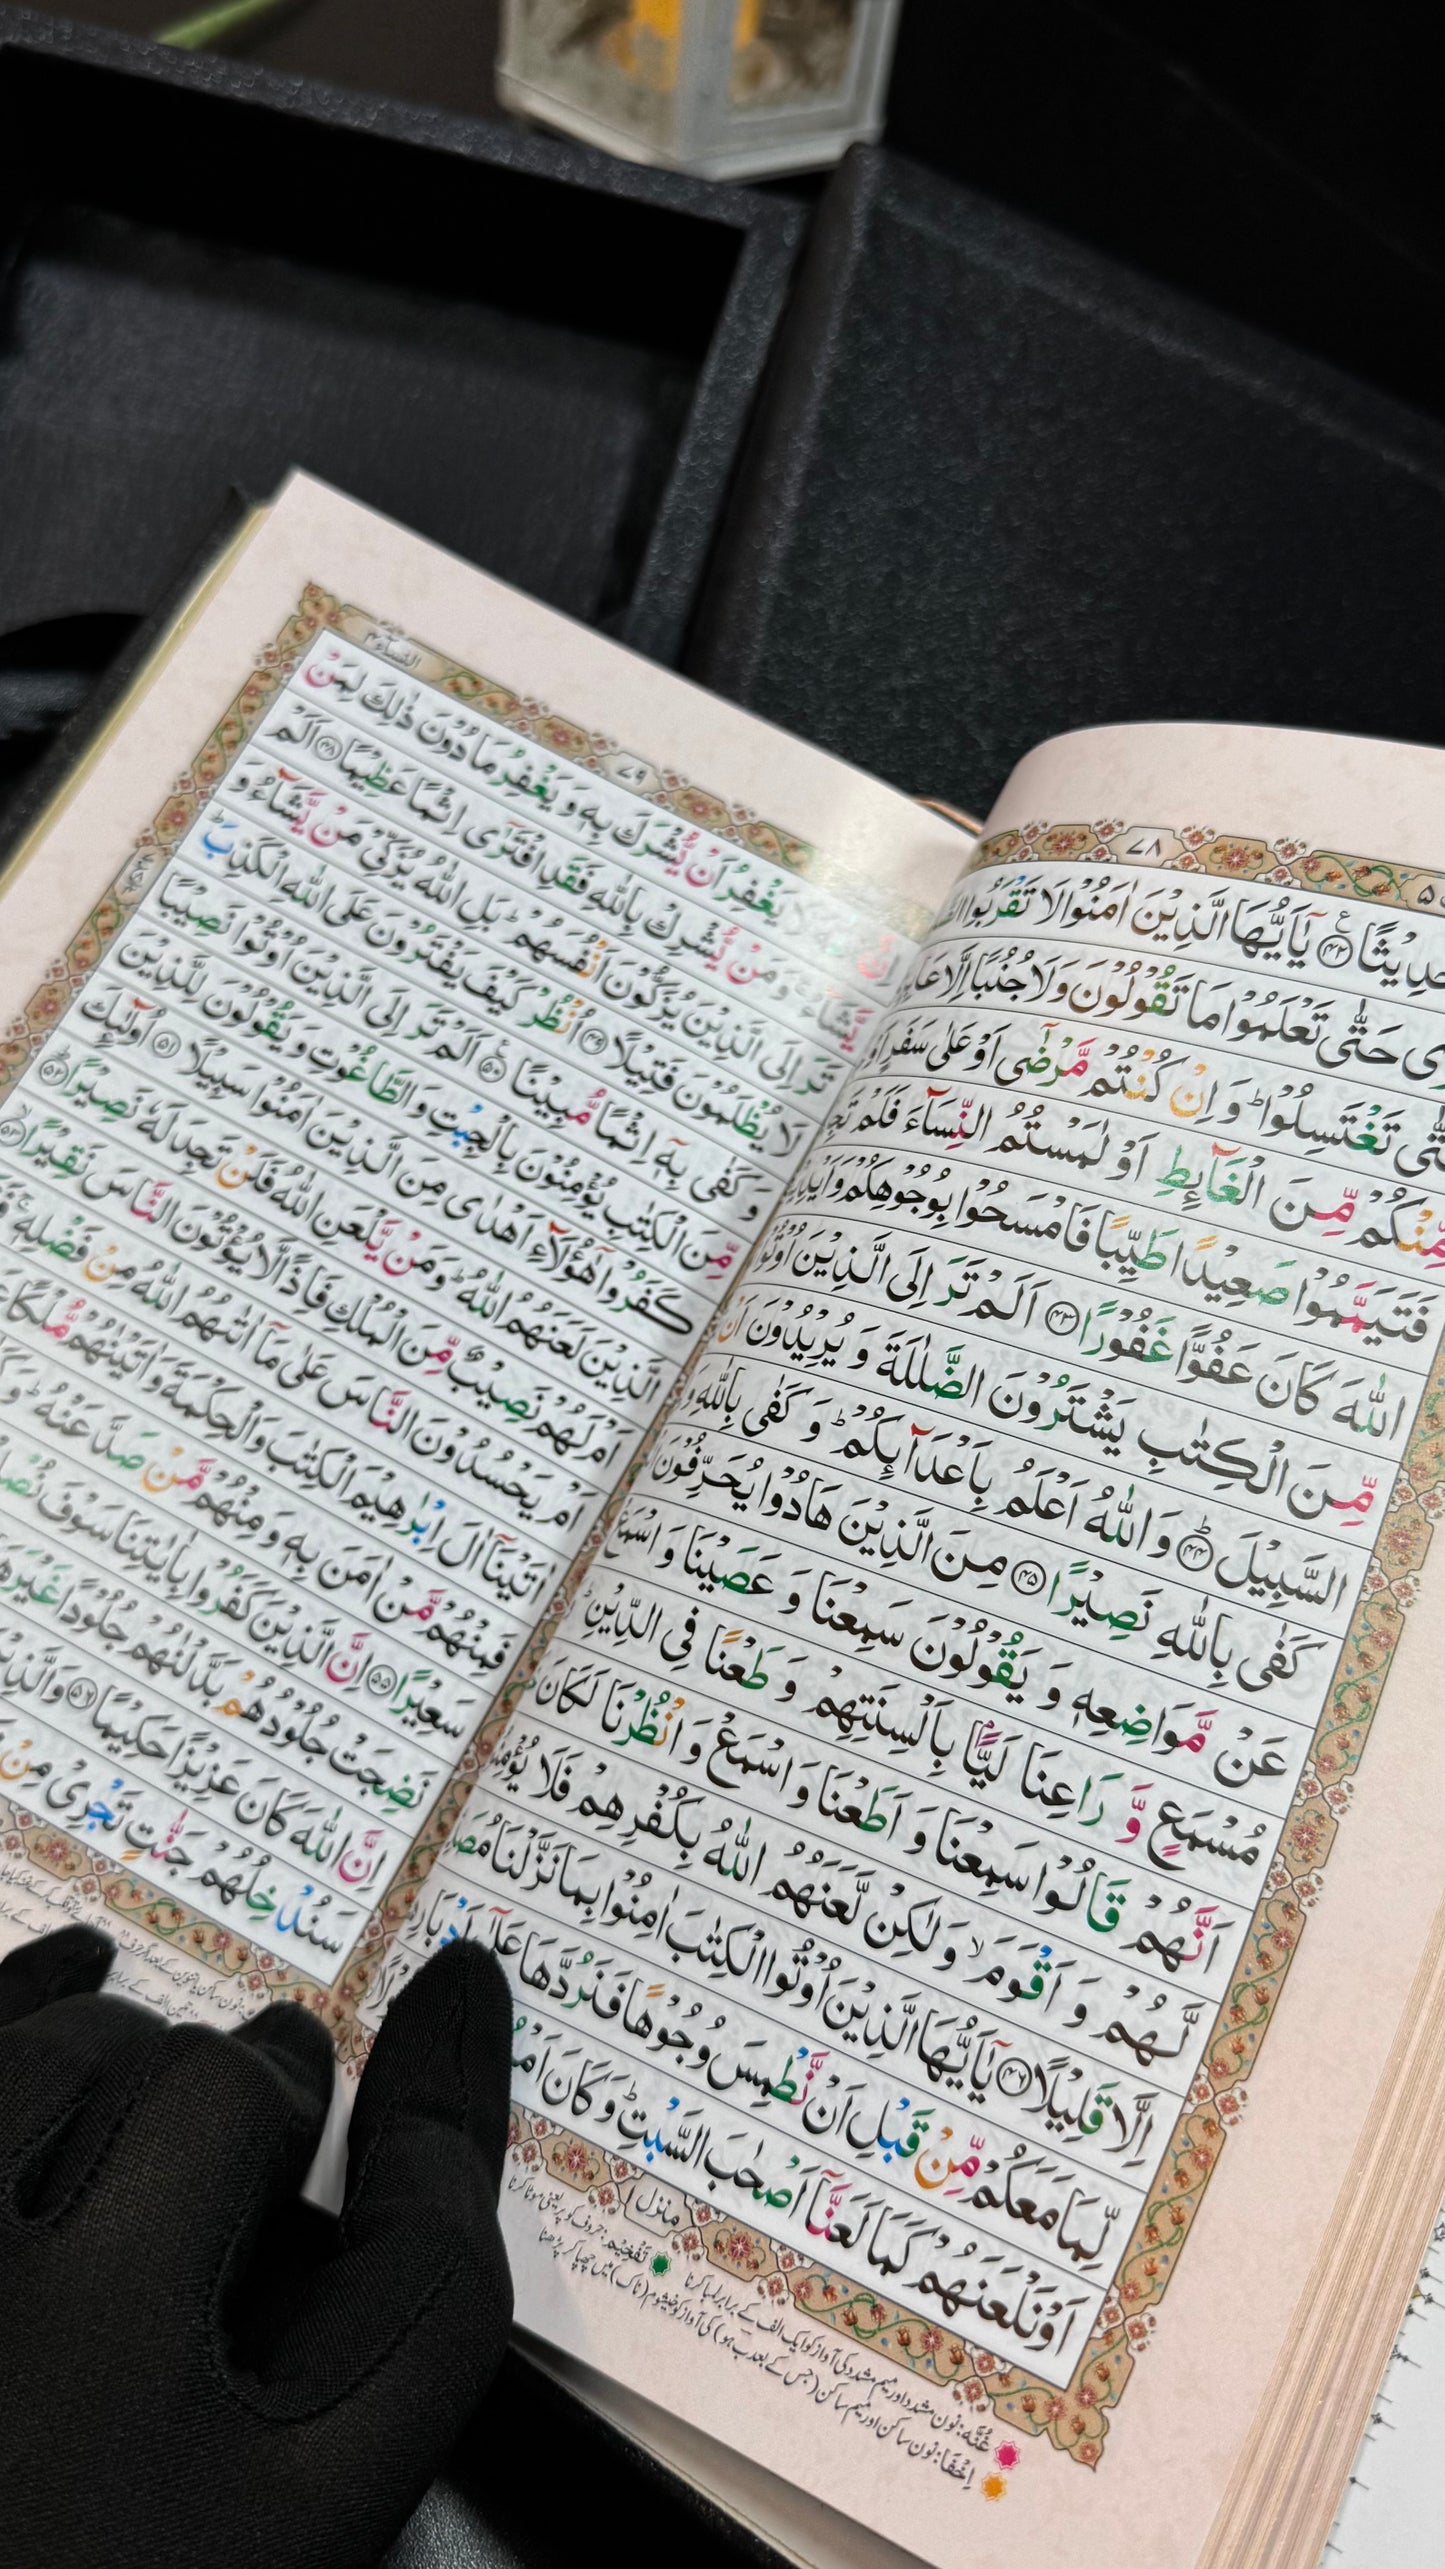 ۷۸
حَدِيْثًا ۴۲ يٰۤاَيُّهَا الَّذِيْنَ اٰمَنُوْا لَا تَقْرَبُوا
حَتّٰى تَعْلَمُوْا مَا تَقُوْلُوْنَ وَلَا جُنُبًا اِلَّا
تَغْتَسِلُوْا ؕ وَ اِنْ كُنْتُمْ مَّرْضٰۤى اَوْ عَلٰى سَفَرٍ
مِّنْكُمْ مِّنَ الْغَآئِطِ اَوْ لٰمَسْتُمُ النِّسَآءَ فَلَمْ
فَتَيَمَّمُوْا صَعِيْدًا طَيِّبًا فَامْسَحُوْا بِوُجُوْهِكُمْ
اللّٰهَ كَانَ عَفُوًّا غَفُوْرًا ۴۳ اَلَمْ تَرَ اِلَى الَّذِيْنَ اُوْتُوْا
مِّنَ الْكِتٰبِ يَشْتَرُوْنَ الضَّلٰلَةَ وَ يُرِيْدُوْنَ اَنْ
السَّبِيْلَ ؕ ۴۴ وَ اللّٰهُ اَعْلَمُ بِاَعْدَآئِكُمْ ؕ وَ كَفٰى بِاللّٰهِ
كَفٰى بِاللّٰهِ نَصِيْرًا ۴۵ مِنَ الَّذِيْنَ هَادُوْا يُحَرِّفُوْنَ
عَنْ مَّوَاضِعِهٖ وَ يَقُوْلُوْنَ سَمِعْنَا وَ عَصَيْنَا وَ اسْمَعْ
مُسْمَعٍ وَّ رَاعِنَا لَيًّۢا بِاَلْسِنَتِهِمْ وَ طَعْنًا فِي الدِّيْنِ ؕ
اَنَّهُمْ قَالُوْا سَمِعْنَا وَ اَطَعْنَا وَ اسْمَعْ وَ انْظُرْنَا لَكَانَ
لَّهُمْ وَ اَقْوَمَ ۙ وَ لٰكِنْ لَّعَنَهُمُ اللّٰهُ بِكُفْرِهِمْ فَلَا
اِلَّا قَلِيْلًا ۴۶ يٰۤاَيُّهَا الَّذِيْنَ اُوْتُوا الْكِتٰبَ اٰمِنُوْا بِمَا نَزَّلْنَا
لِّمَا مَعَكُمْ مِّنْ قَبْلِ اَنْ نَّطْمِسَ وُجُوْهًا فَنَرُدَّهَا عَلٰۤى
اَوْ نَلْعَنَهُمْ كَمَا لَعَنَّاۤ اَصْحٰبَ السَّبْتِ ؕ وَ كَانَ
منزل
غُنَّه: نون مشدد اور میم مشدد کی آواز کو ایک الف کے برابر لمبا کرنا
تَفْخِيْم: حروف کو پُر یعنی موٹا کرنا
اِخْفَا: نون ساکن اور میم ساکن (جس کے بعد ب ہو) کی آواز کو خیشوم (ناک) میں چھپا کر پڑھنا
النساء ۴
۷۹
لَا يَغْفِرُ اَنْ يُّشْرَكَ بِهٖ وَ يَغْفِرُ مَا دُوْنَ ذٰلِكَ لِمَنْ
يَّشَآءُ ۚ وَ مَنْ يُّشْرِكْ بِاللّٰهِ فَقَدِ افْتَرٰۤى اِثْمًا عَظِيْمًا ۴۸ اَلَمْ
تَرَ اِلَى الَّذِيْنَ يُزَكُّوْنَ اَنْفُسَهُمْ ؕ بَلِ اللّٰهُ يُزَكِّيْ مَنْ يَّشَآءُ وَ
لَا يُظْلَمُوْنَ فَتِيْلًا ۴۹ اُنْظُرْ كَيْفَ يَفْتَرُوْنَ عَلَى اللّٰهِ الْكَذِبَ ؕ
وَ كَفٰى بِهٖۤ اِثْمًا مُّبِيْنًا ۵۰ اَلَمْ تَرَ اِلَى الَّذِيْنَ اُوْتُوْا نَصِيْبًا
مِّنَ الْكِتٰبِ يُؤْمِنُوْنَ بِالْجِبْتِ وَ الطَّاغُوْتِ وَ يَقُوْلُوْنَ لِلَّذِيْنَ
كَفَرُوْا هٰۤؤُلَآءِ اَهْدٰى مِنَ الَّذِيْنَ اٰمَنُوْا سَبِيْلًا ۵۱ اُولٰٓئِكَ
الَّذِيْنَ لَعَنَهُمُ اللّٰهُ ؕ وَ مَنْ يَّلْعَنِ اللّٰهُ فَلَنْ تَجِدَ لَهٗ نَصِيْرًا ؕ ۵۲
اَمْ لَهُمْ نَصِيْبٌ مِّنَ الْمُلْكِ فَاِذًا لَّا يُؤْتُوْنَ النَّاسَ نَقِيْرًا ۙ ۵۳
اَمْ يَحْسُدُوْنَ النَّاسَ عَلٰى مَاۤ اٰتٰىهُمُ اللّٰهُ مِنْ فَضْلِهٖ ۚ
اٰتَيْنَاۤ اٰلَ اِبْرٰهِيْمَ الْكِتٰبَ وَ الْحِكْمَةَ وَ اٰتَيْنٰهُمْ مُّلْكًا
فَمِنْهُمْ مَّنْ اٰمَنَ بِهٖ وَ مِنْهُمْ مَّنْ صَدَّ عَنْهُ ؕ
سَعِيْرًا ۵۵ اِنَّ الَّذِيْنَ كَفَرُوْا بِاٰيٰتِنَا سَوْفَ
نَضِجَتْ جُلُوْدُهُمْ بَدَّلْنٰهُمْ جُلُوْدًا
اِنَّ اللّٰهَ كَانَ عَزِيْزًا حَكِيْمًا ۵۶
سَنُدْخِلُهُمْ جَنّٰتٍ تَجْرِيْ مِنْ